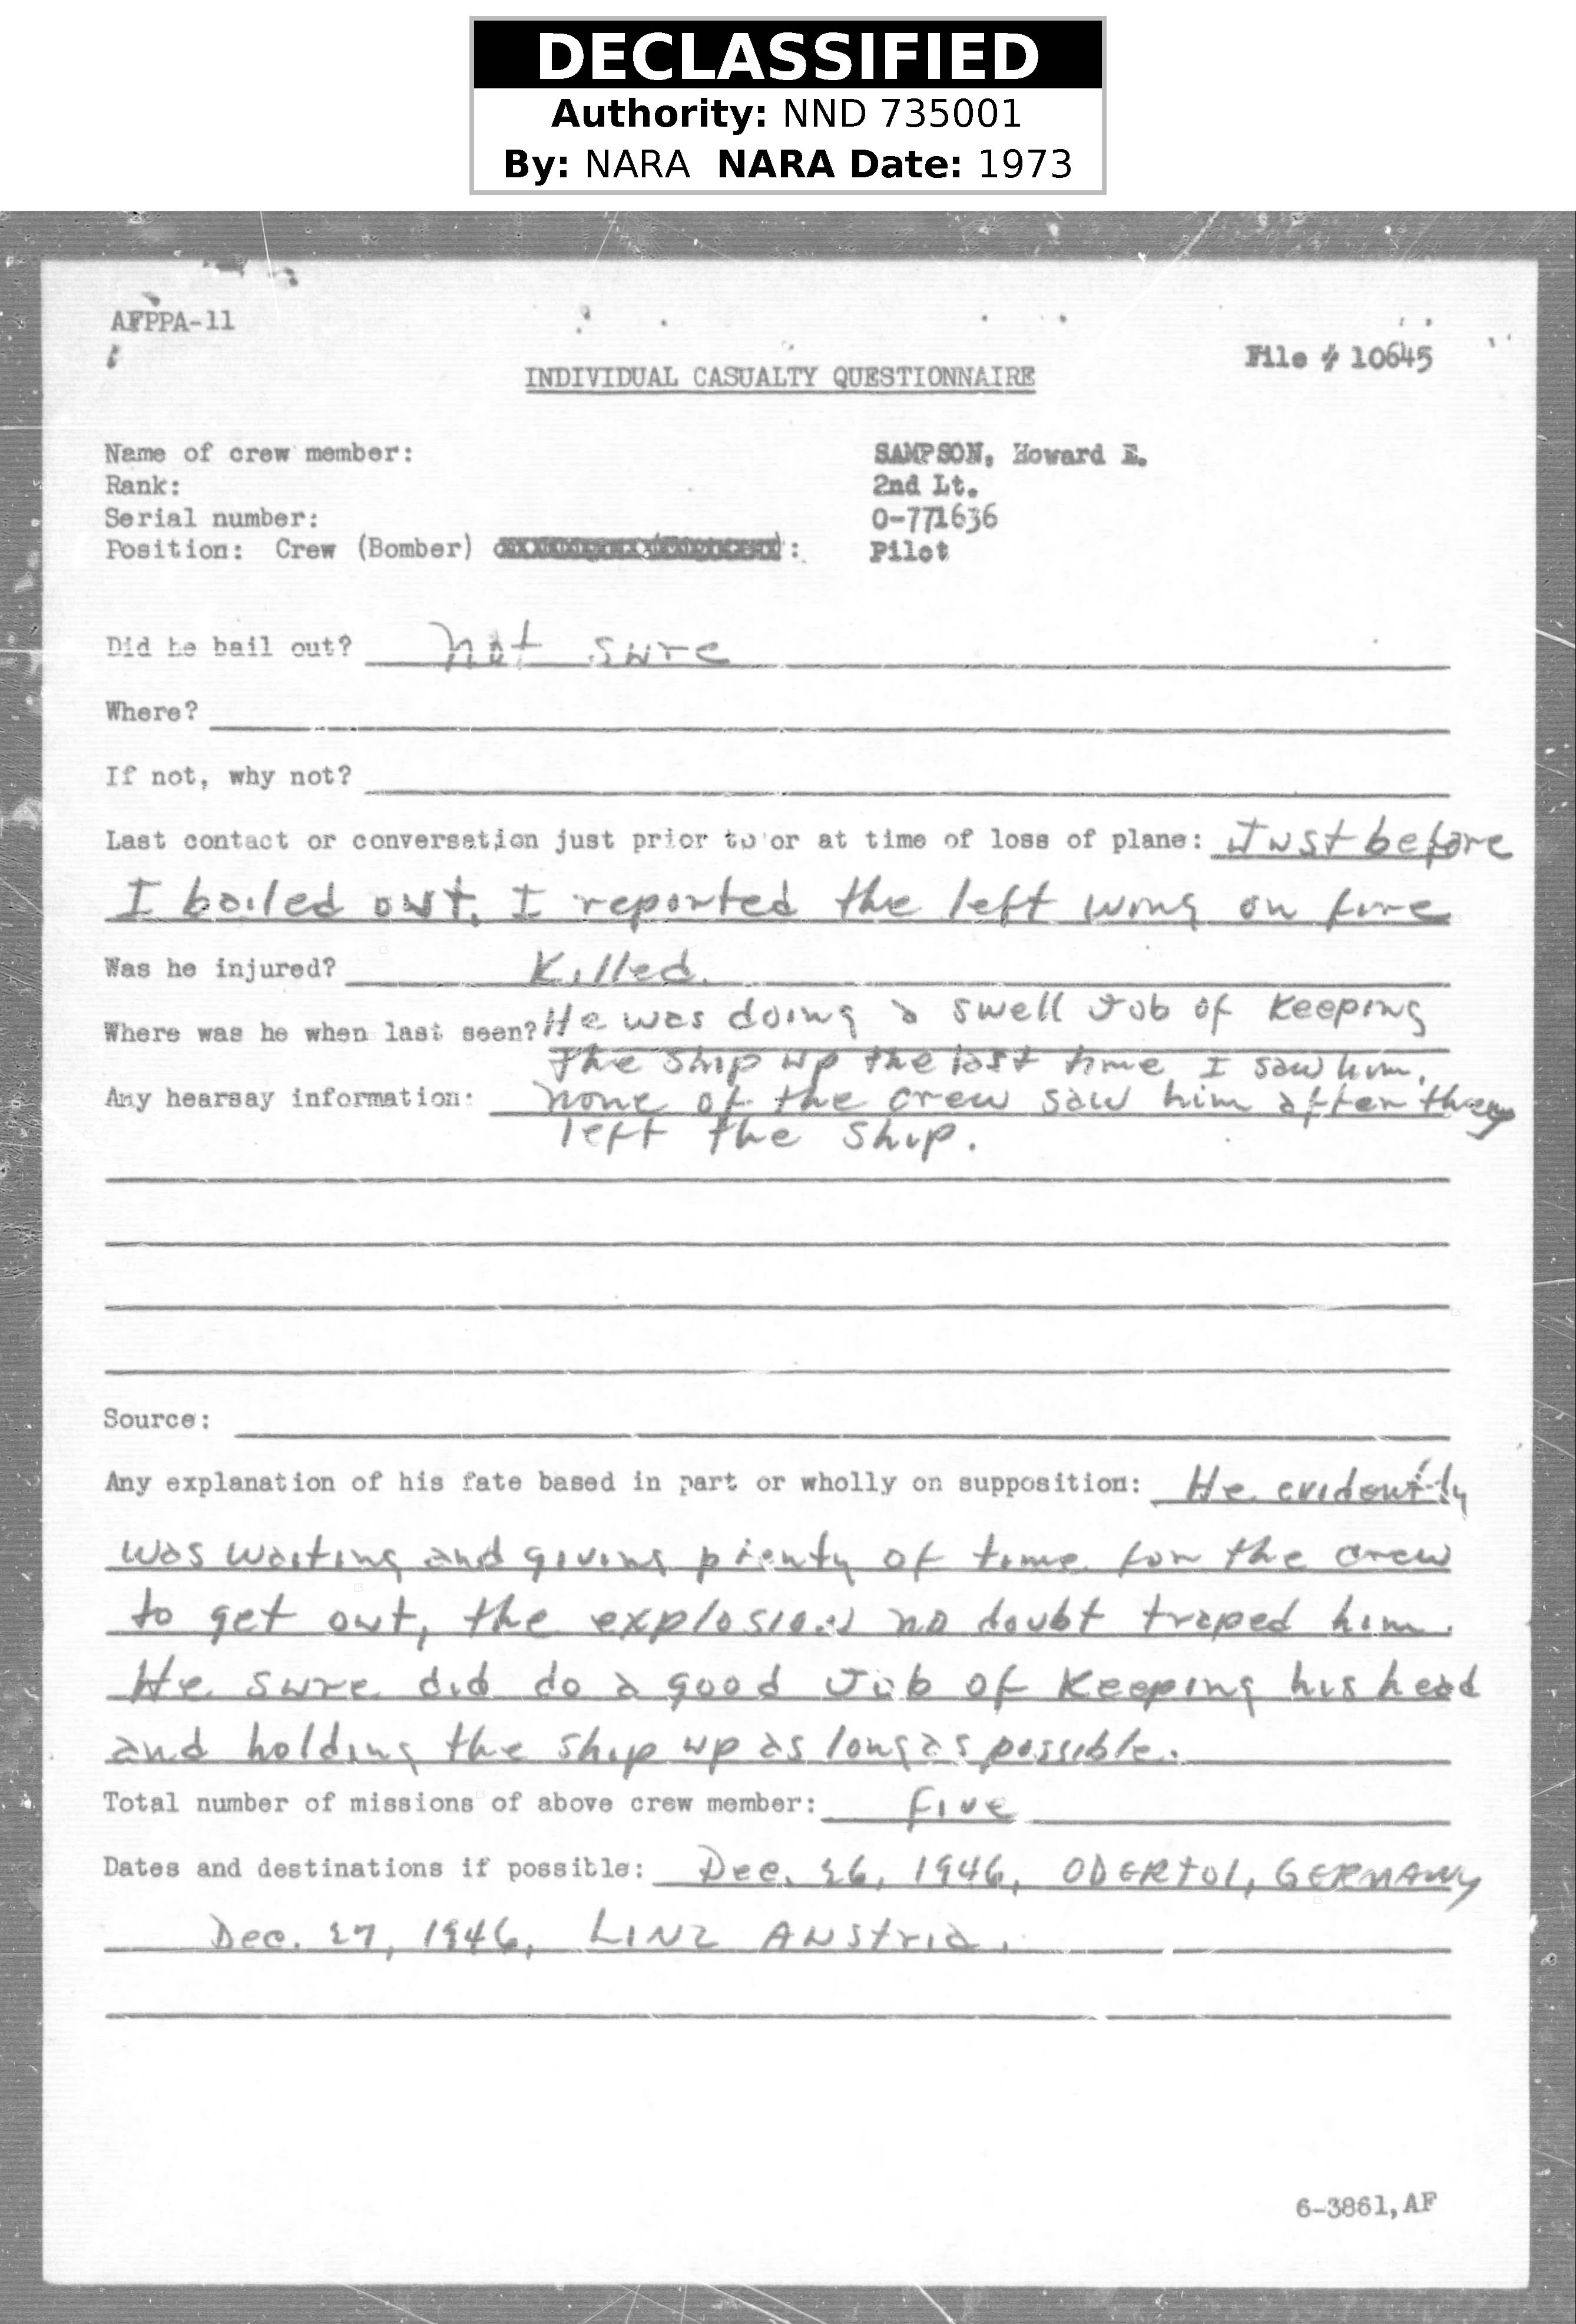 DECLASSIFIED
Authority: NND 735001
By: NARA NARA Date: 1973
AFPPA-11
File # 10645
INDIVIDUAL CASUALTY QUESTIONNAIRE
Name of crew member: SAMPSON, Howard E.
Rank: 2nd Lt.
Serial number: O-771636
Position: Crew (Bomber) : Pilot
Did he bail out? not sure
Where?
If not, why not?
Last contact or conversation just prior to or at time of loss of plane: Just before
I bailed out. I reported the left wing on fire
Was he injured? Killed.
Where was he when last seen? He was doing a swell Job of Keeping
The ship up the last time I saw him.
Any hearsay information: none of the crew saw him after they
left the ship.
Source:
Any explanation of his fate based in part or wholly on supposition: He evidently
was waiting and giving plenty of time for the crew
to get out, the explosion no doubt traped him.
He sure did do a good Job of Keeping his head
and holding the ship up as long as possible.
Total number of missions of above crew member: five
Dates and destinations if possible: Dec. 26, 1946, ODERtol, GERMANY
Dec. 27, 1946, LINZ AUStria.
6-3861,AF